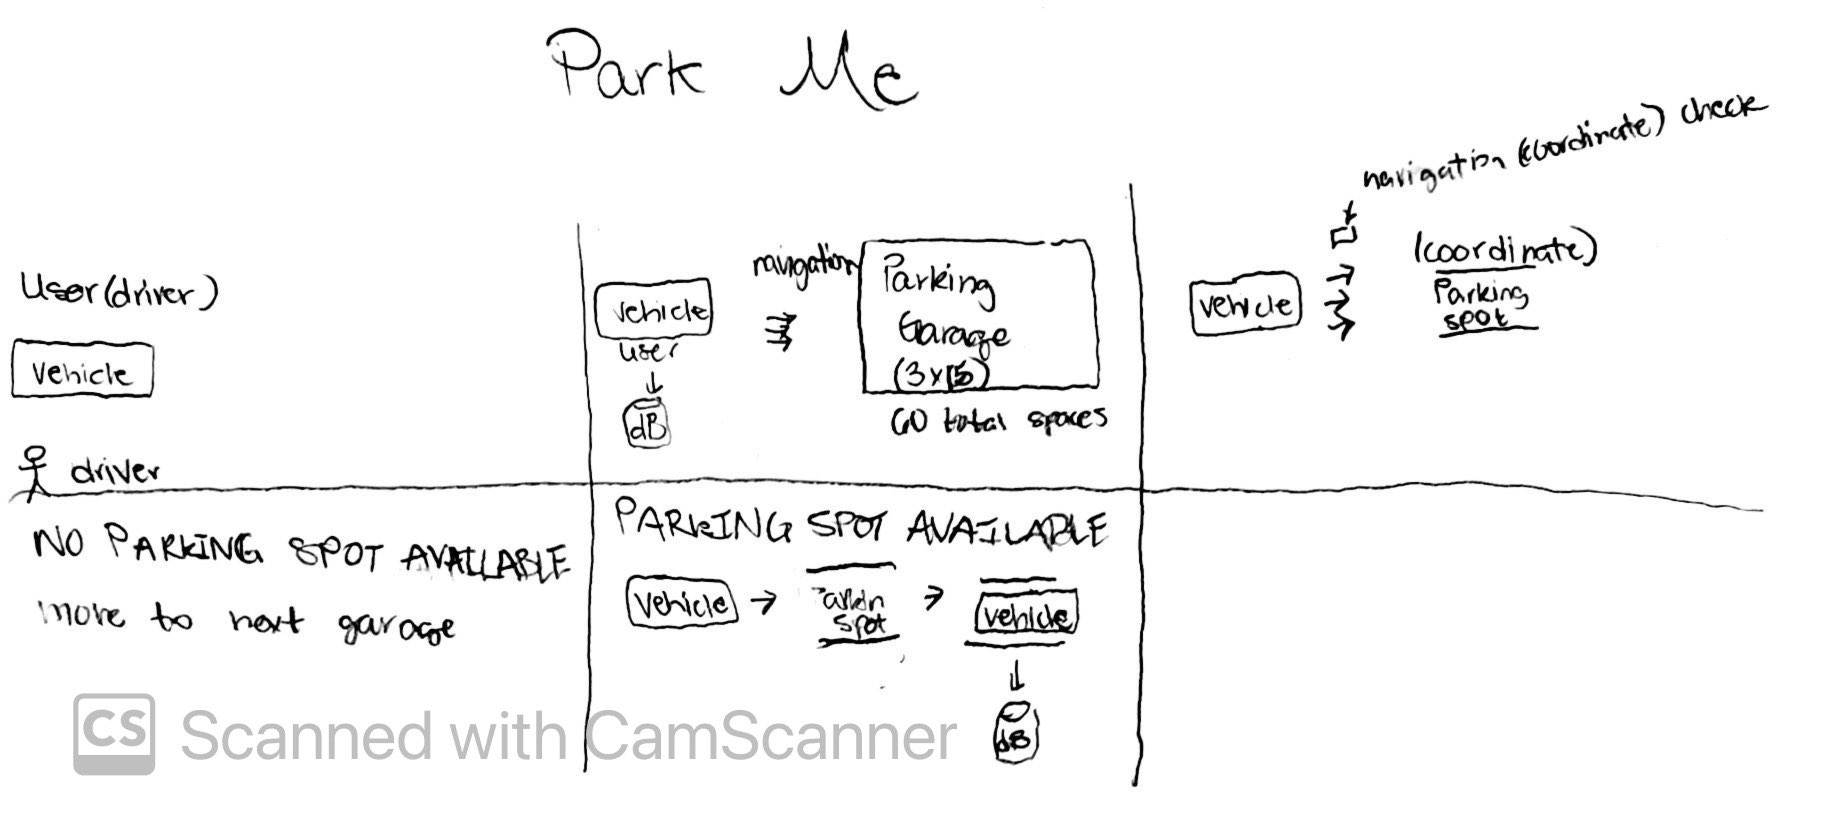 Park Me
User(driver)
vehicle
driver
vehicle
user
dB
navigation
Parking
Garage
(3x15)
60 total spaces
navigation (coordinate) check
vehicle
(coordinate)
Parking
spot
NO PARKING SPOT AVAILABLE
move to next garage
PARKING SPOT AVAILABLE
vehicle
spot
vehicle
dB
CS Scanned with CamScanner